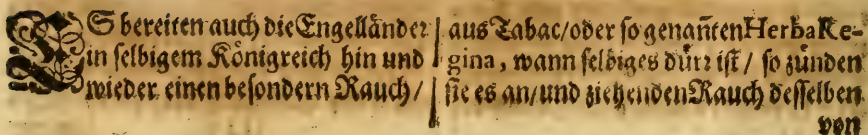 ES bereiten auch die Engelländer
in selbigem Königreich hin und
wieder einen besondern Rauch/
aus Tabac/oder so genanten Herba Re-
gina, wann selbiges dürr ist / so zünden
sie es an/und ziehen den Rauch desselben
von